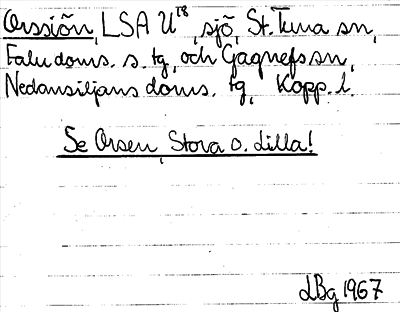 Orssiön, LSA U¹⁸, sjö, St. Tuna sn,
Falu doms. s. tg, och Gagnefs sn,
Nedansiljans doms. tg, Kopp. l.
Se Orsen, Stora o. Lilla!
LBg 1967